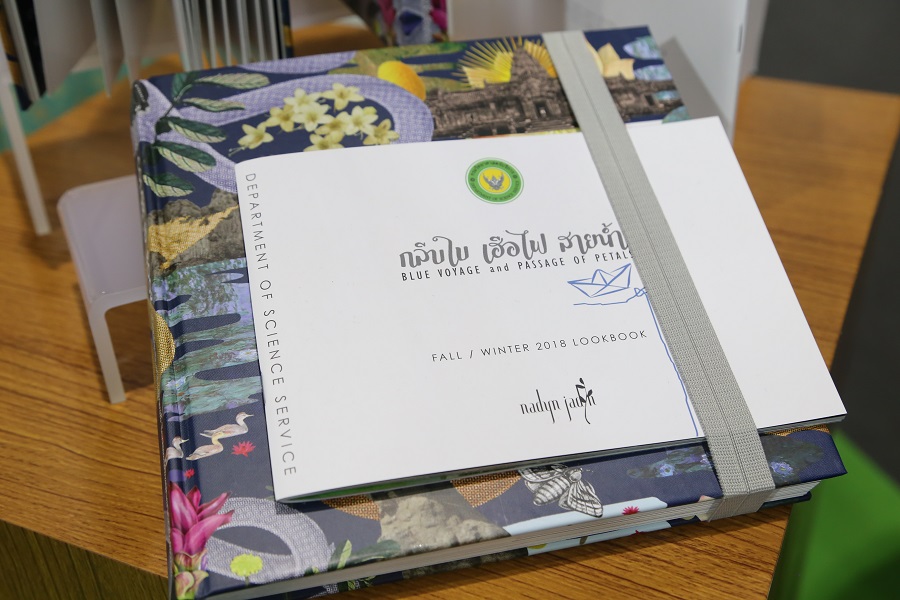 DEPARTMENT OF SCIENCE SERVICE
กลีบใบ เฮือไฟ สายน้ำ
BLUE VOYAGE and PASSAGE OF PETALS
FALL / WINTER 2018 LOOKBOOK
nadyn jadyn